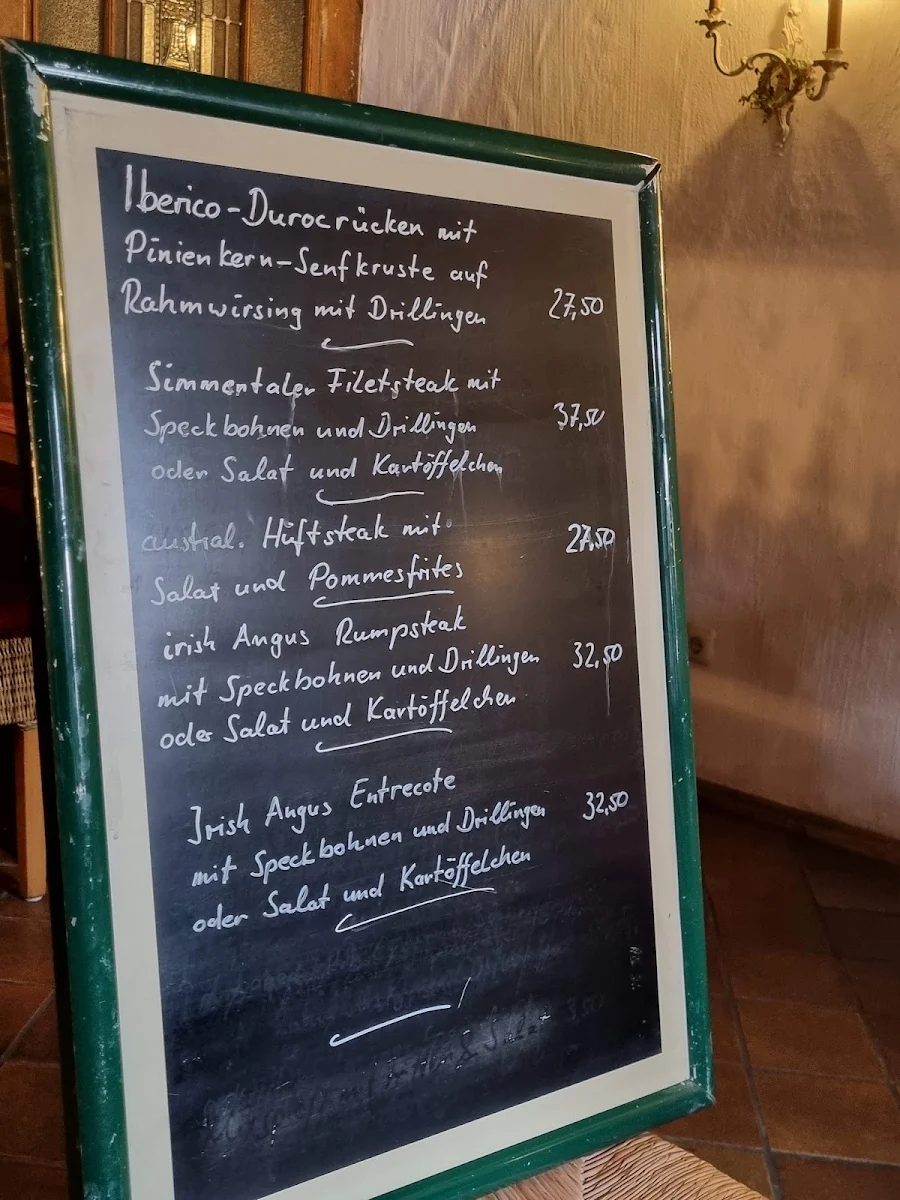 Iberico-Durocrücken mit
Pinienkern-Senfkruste auf
Rahmwirsing mit Drillingen 27,50
Simmentaler Filetsteak mit
Speckbohnen und Drillingen 37,50
oder Salat und Kartöffelchen
austral. Hüftsteak mit 27,50
Salat und Pommesfrites
irish Angus Rumpsteak
mit Speckbohnen und Drillingen 32,50
oder Salat und Kartöffelchen
Irish Angus Entrecote 32,50
mit Speckbohnen und Drillingen
oder Salat und Kartöffelchen